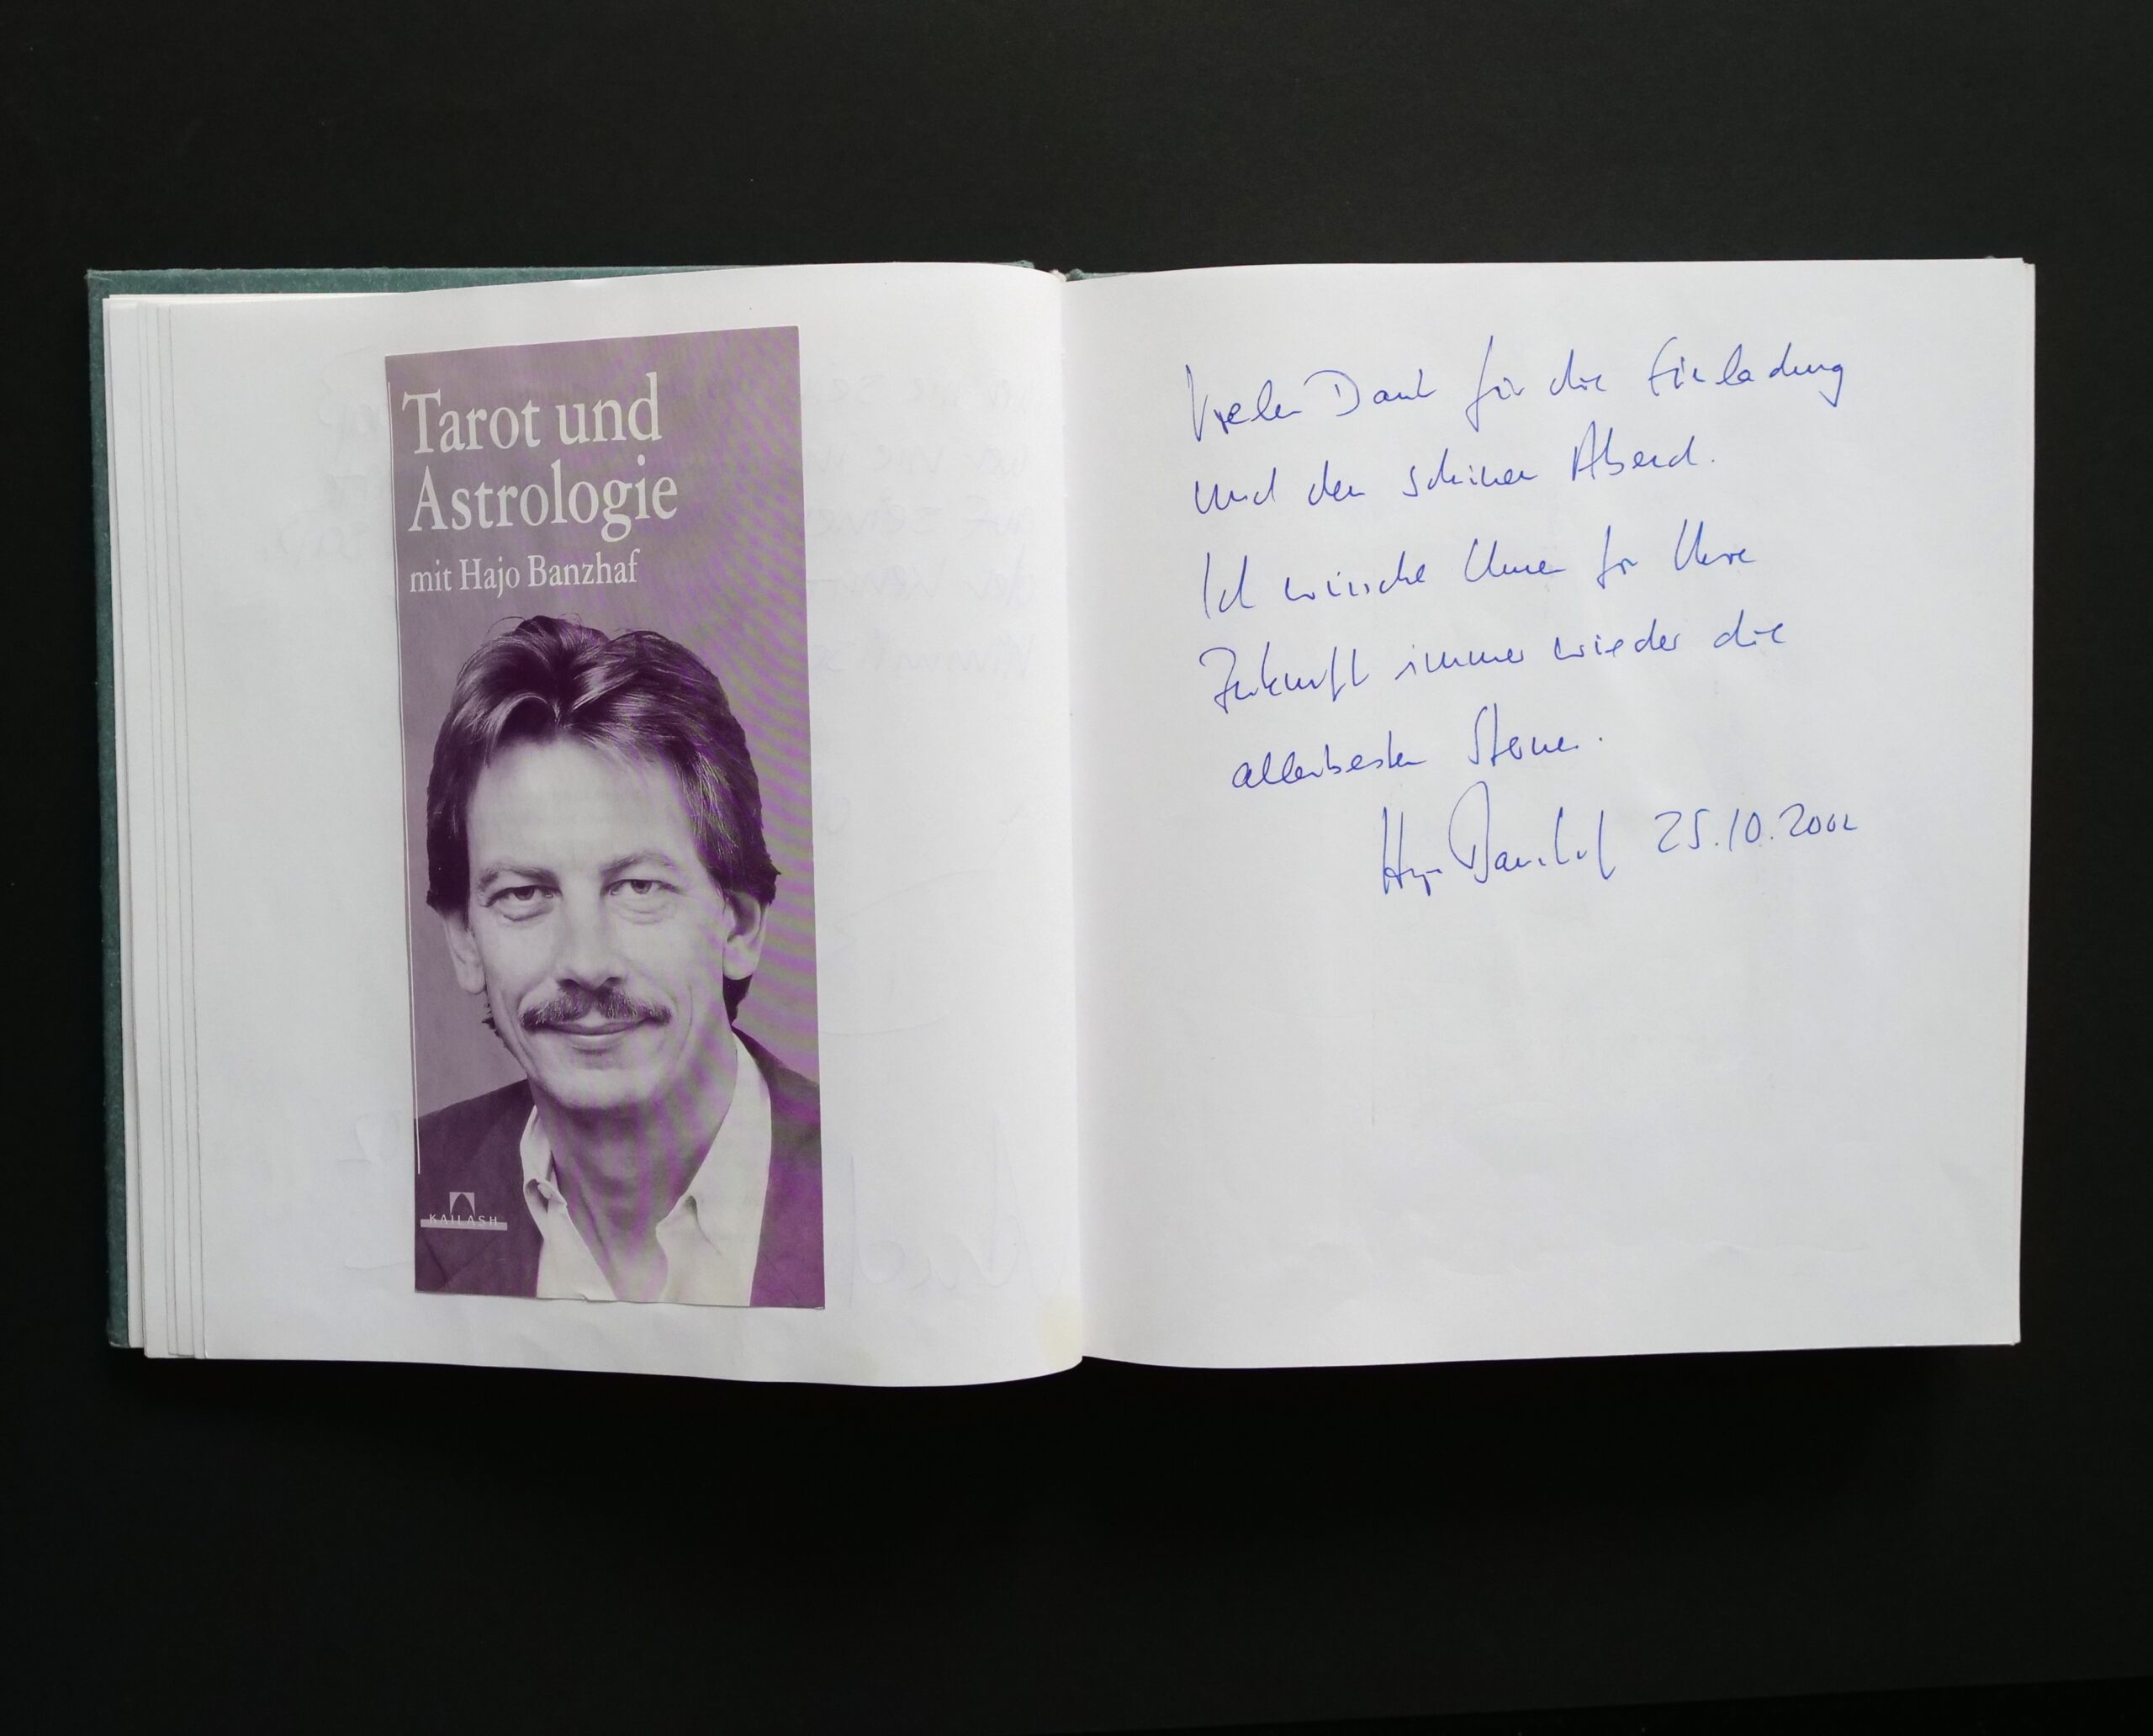 Tarot und
Astrologie
mit Hajo Banzhaf
KAILASH
Vielen Dank für die Einladung
und den schönen Abend.
Ich wünsche Ihnen für Ihre
Zukunft immer wieder die
allerbesten Sterne.
Hajo Banzhaf 25.10.2002